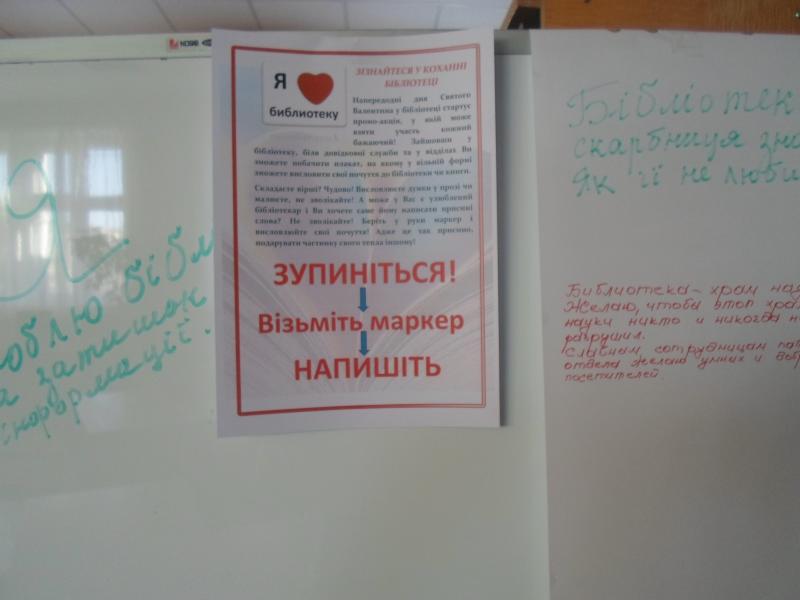 Я
библиотеку
ЗІЗНАЙТЕСЯ У КОХАННІ
БІБЛІОТЕЦІ
Напередодні дня Святого
Валентина у бібліотеці стартує
промо-акція, у якій може
взяти участь кожний
бажаючий! Зайшовши у
бібліотеку, біля довідкової служби та у відділах Ви
зможете побачити плакат, на якому у вільній формі
зможете висловити свої почуття до бібліотеки чи книги.
Складаєте вірші? Чудово! Висловлюєте думки у прозі чи
малюєте, не зволікайте! А може у Вас є улюблений
бібліотекар і Ви хочете саме йому написати приємні
слова? Не зволікайте! Беріть у руки маркер і
висловлюйте свої почуття! Адже це так приємно,
подарувати частинку свого тепла іншому!
ЗУПИНІТЬСЯ!
Візьміть маркер
НАПИШІТЬ
Я
юблю бібл
за затишок
інформації.
Бібліотек
скарбниця зна
Як її не люби
Библиотека - храм нау
Желаю, чтобы этот храм
науки никто и никогда н
разрушил.
Славным сотрудницам
отдела желаю умных и
посетителей.